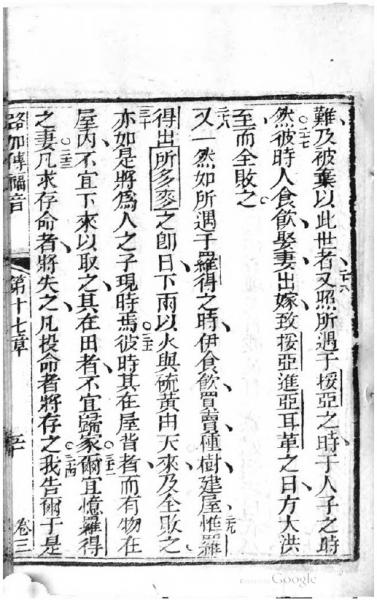 難及被棄以此世者二六又照所遇于挼亞之時于人子之時
二七然彼時人食飲娶妻出嫁致挼亞進亞耳革之日方大洪
至而全敗之
二八又一然如所遇于羅得之時伊食飲買賣種樹建屋二九惟羅
得出所多麥之即日下雨以火與硫黃由天來及全敗之
三十亦如是將爲人之子現時焉三一彼時其在屋背者而有物在
屋內不宜下來以取之其在田者不宜歸家三二爾宜憶羅得
之妻三三凡求存命者將失之凡投命者將存之三四我告爾于是
路加傳福音
第十七章
卷三
Google